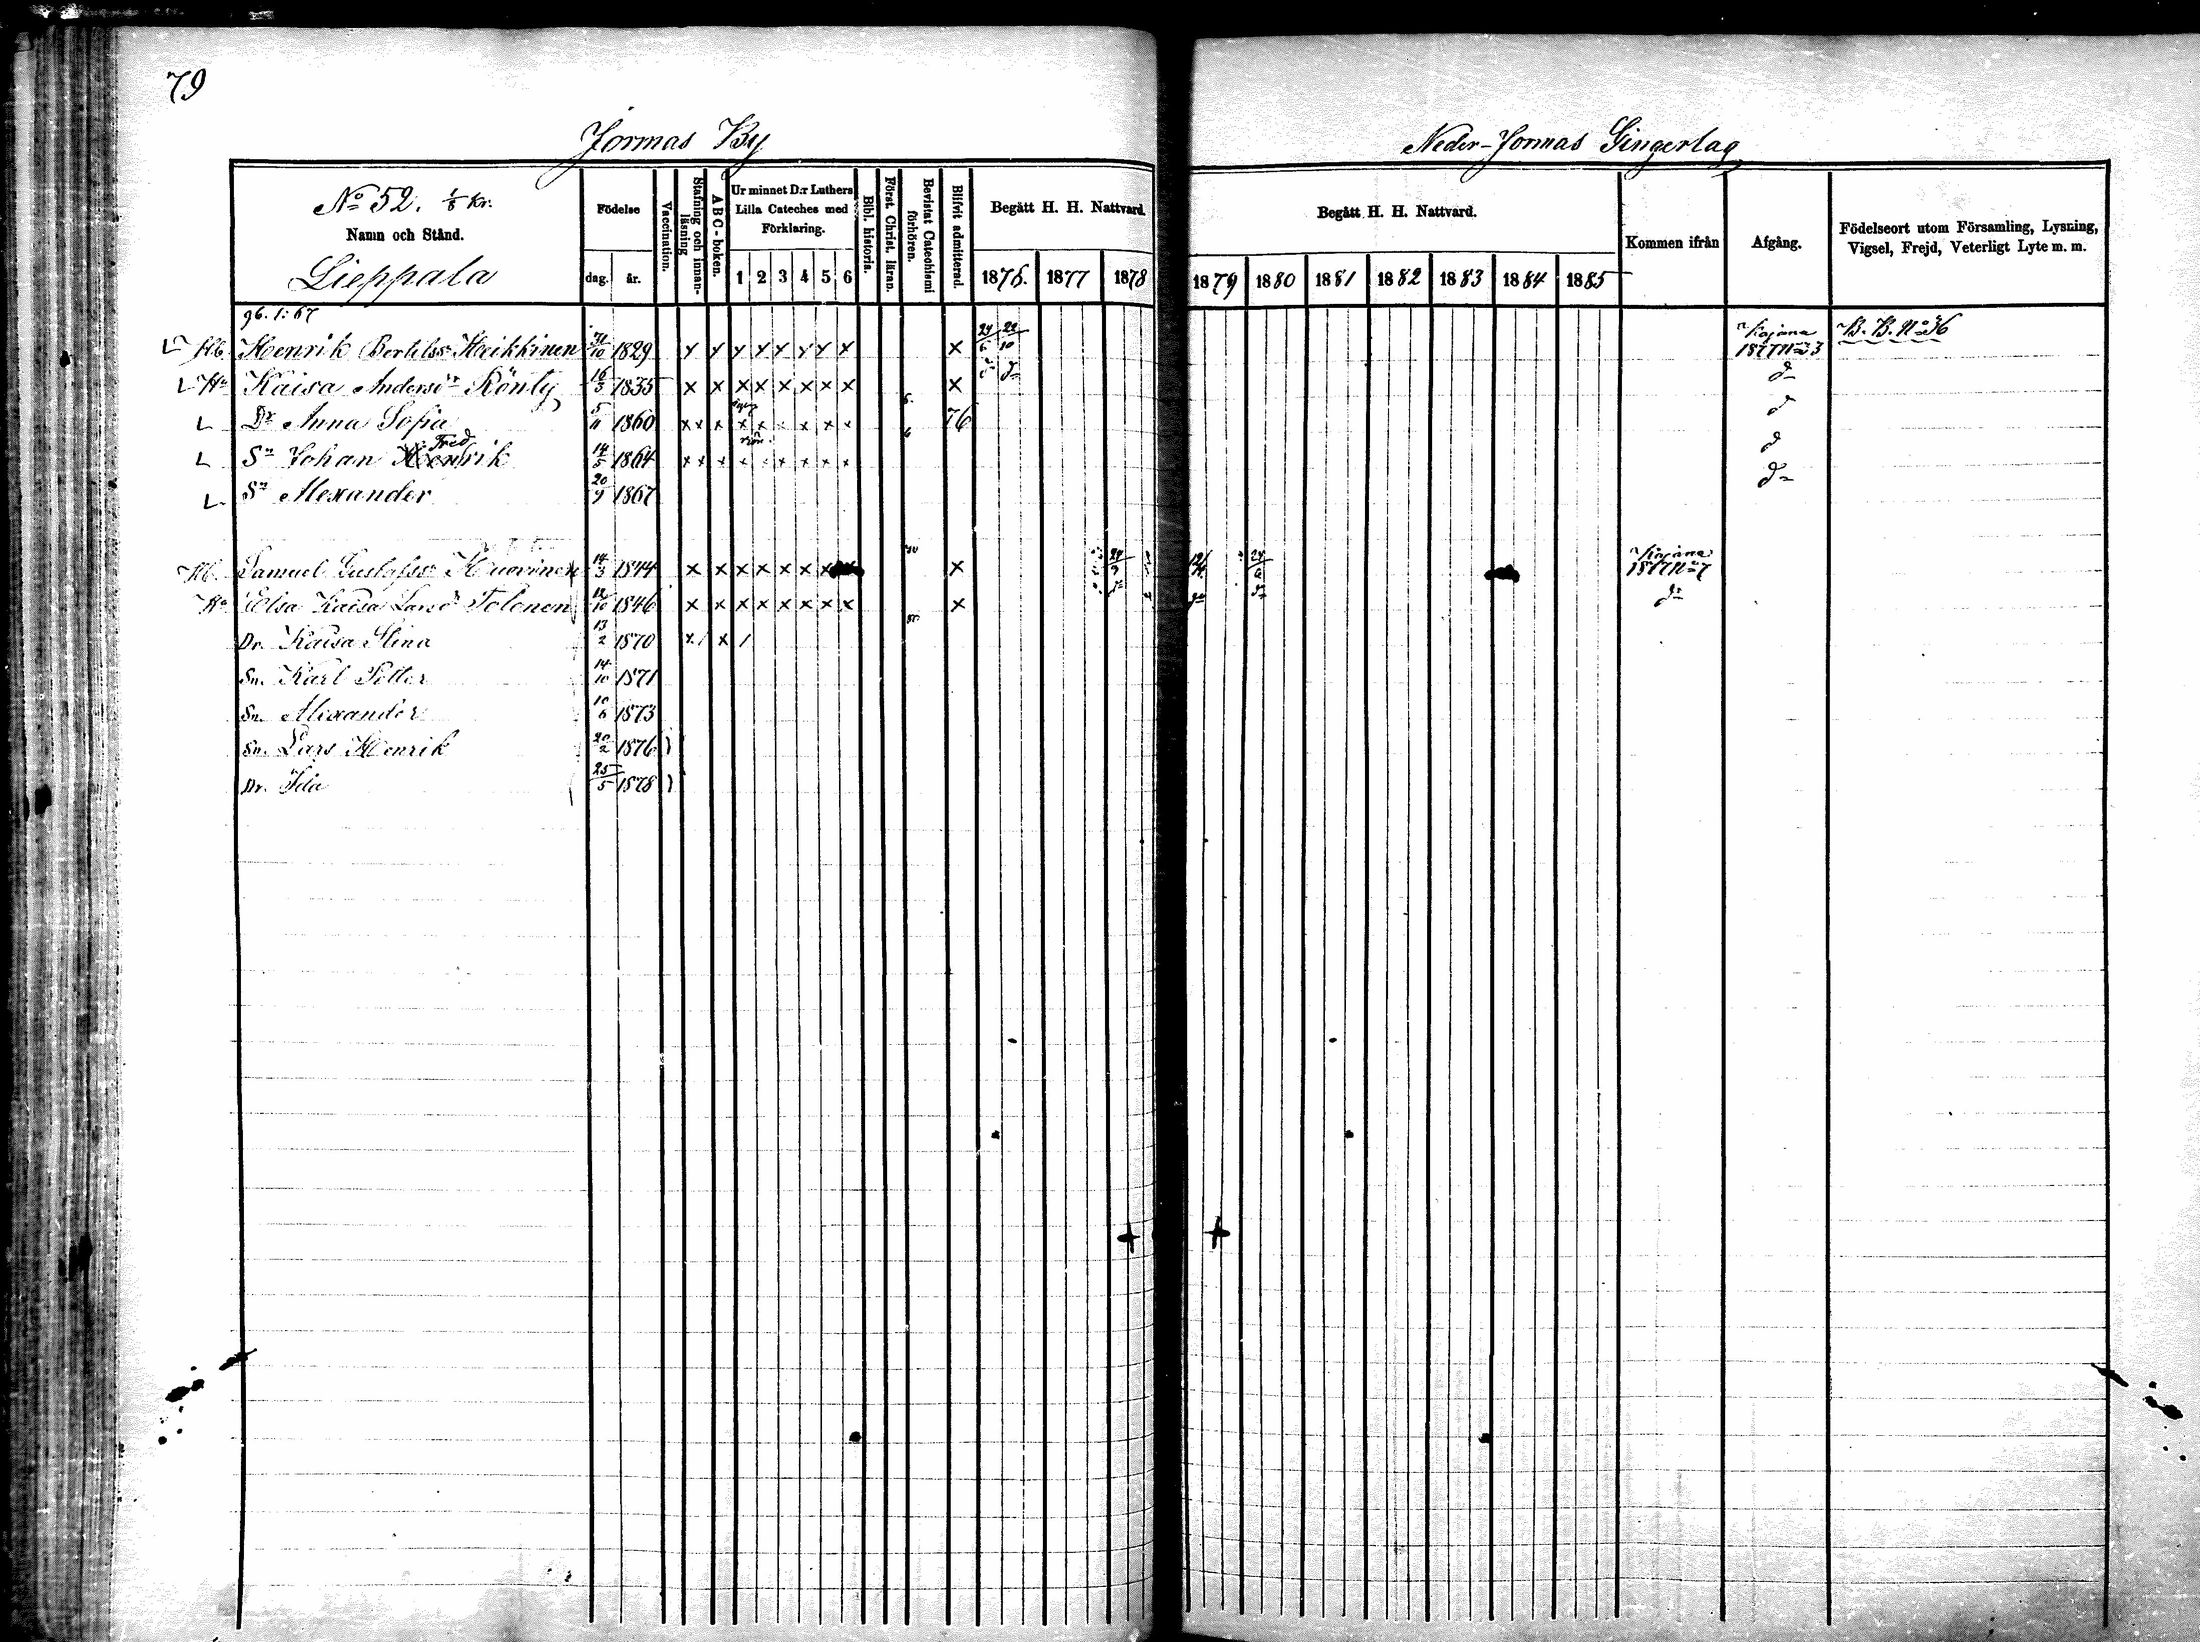 79
Jormas By
Neder-Jormas Gingerlag
No 52. 1/8 Kr.
Namn och Stånd.
Lieppala
Födelse
dag. år.
Vaccination.
Stafning och innan-läsning
A B C - boken.
Ur minnet D:r Luthers
Lilla Cateches med
Förklaring.
1 2 3 4 5 6
Bibl. historia.
Först. Christ. läran.
Bevistat Catechismi förhören.
Blifvit admitterad.
Begått H. H. Nattvard.
1876. 1877 1878
Begått H. H. Nattvard.
1879 1880 1881 1882 1883 1884 1885
Kommen ifrån
Afgång.
Födelseort utom Församling, Lysning,
Vigsel, Frejd, Veterligt Lyte m. m.
96. 1:67
Hb. Henrik Bertilss Heikkinen 31/10 1829 x x x x x x x x x 24/6 22/10 Kajana 1877 No 3 B. B. No 36
Hu Kaisa Andersdr Rönty 16/3 1835 x x x x x x x x x do do do
Dr Anna Sofia 5/11 1860 x x x x x x x x 6. 76 do
Sn Johan Fredrik 14/5 1864 x x x x x x x x 6 do
Sn Alexander 20/9 1867 do
Hb. Samuel Gustafss Huovinen 14/3 1844 x x x x x x x x 24/3 24/6 Kajana 1877 No 7
Hu Elsa Kaisa Larsdr Tolonen 12/10 1846 x x x x x x x x x do do do do
Dr. Kaisa Stina 13/2 1870 x / x /
Sn. Karl Petter 14/10 1871
Sn. Alexander 10/6 1873
Sn. Lars Henrik 20/2 1876
Dr. Ida 25/5 1878